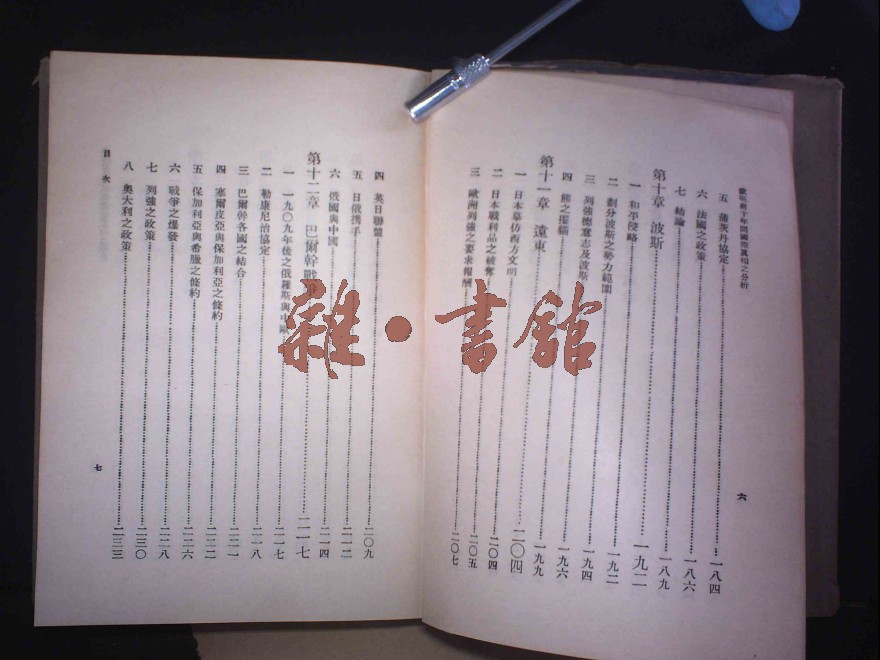 歐戰前十年間國際真相之分析
五 蒲茨丹協定 一八四
六 法國之政策 一八六
七 結論 一八九
第十章 波斯 一九二
一 和平侵略 一九二
二 劃分波斯之勢力範圍 一九四
三 列強德意志及波斯 一九六
四 熊之撲貓 一九九
第十一章 遠東 二〇四
一 日本摹仿西方文明 二〇四
二 日本戰利品之被奪 二〇五
三 歐洲列強之要求報酬 二〇七
六
四 英日聯盟 二〇九
五 日俄携手 二一二
六 俄國與中國 二一四
第十二章 巴爾幹戰 二一七
一 一九〇九年後之俄羅斯與中歐 二一七
二 勒康尼治協定 二一八
三 巴爾幹各國之結合 二二一
四 塞爾皮亞與保加利亞之條約 二二二
五 保加利亞與希臘之條約 二二六
六 戰爭之爆發 二二八
七 列強之政策 二三〇
八 奧大利之政策 二三三
目次
七
雜·書館